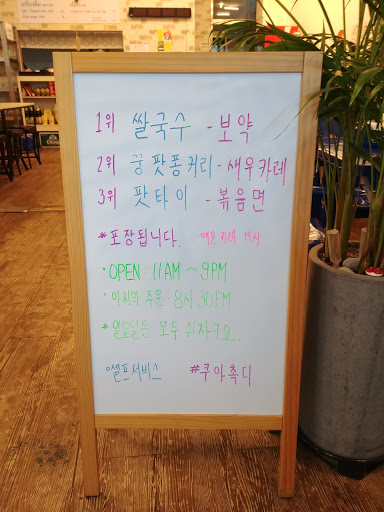 1위 쌀국수 - 보약
2위 꿍 팟퐁커리 - 새우카레
3위 팟타이 - 볶음면
*포장됩니다.
OPEN 11AM ~ 9PM
마지막 주문 8시 30PM
*일요일은 모두 쉬자구요..
셀프서비스 #쿠아촉디